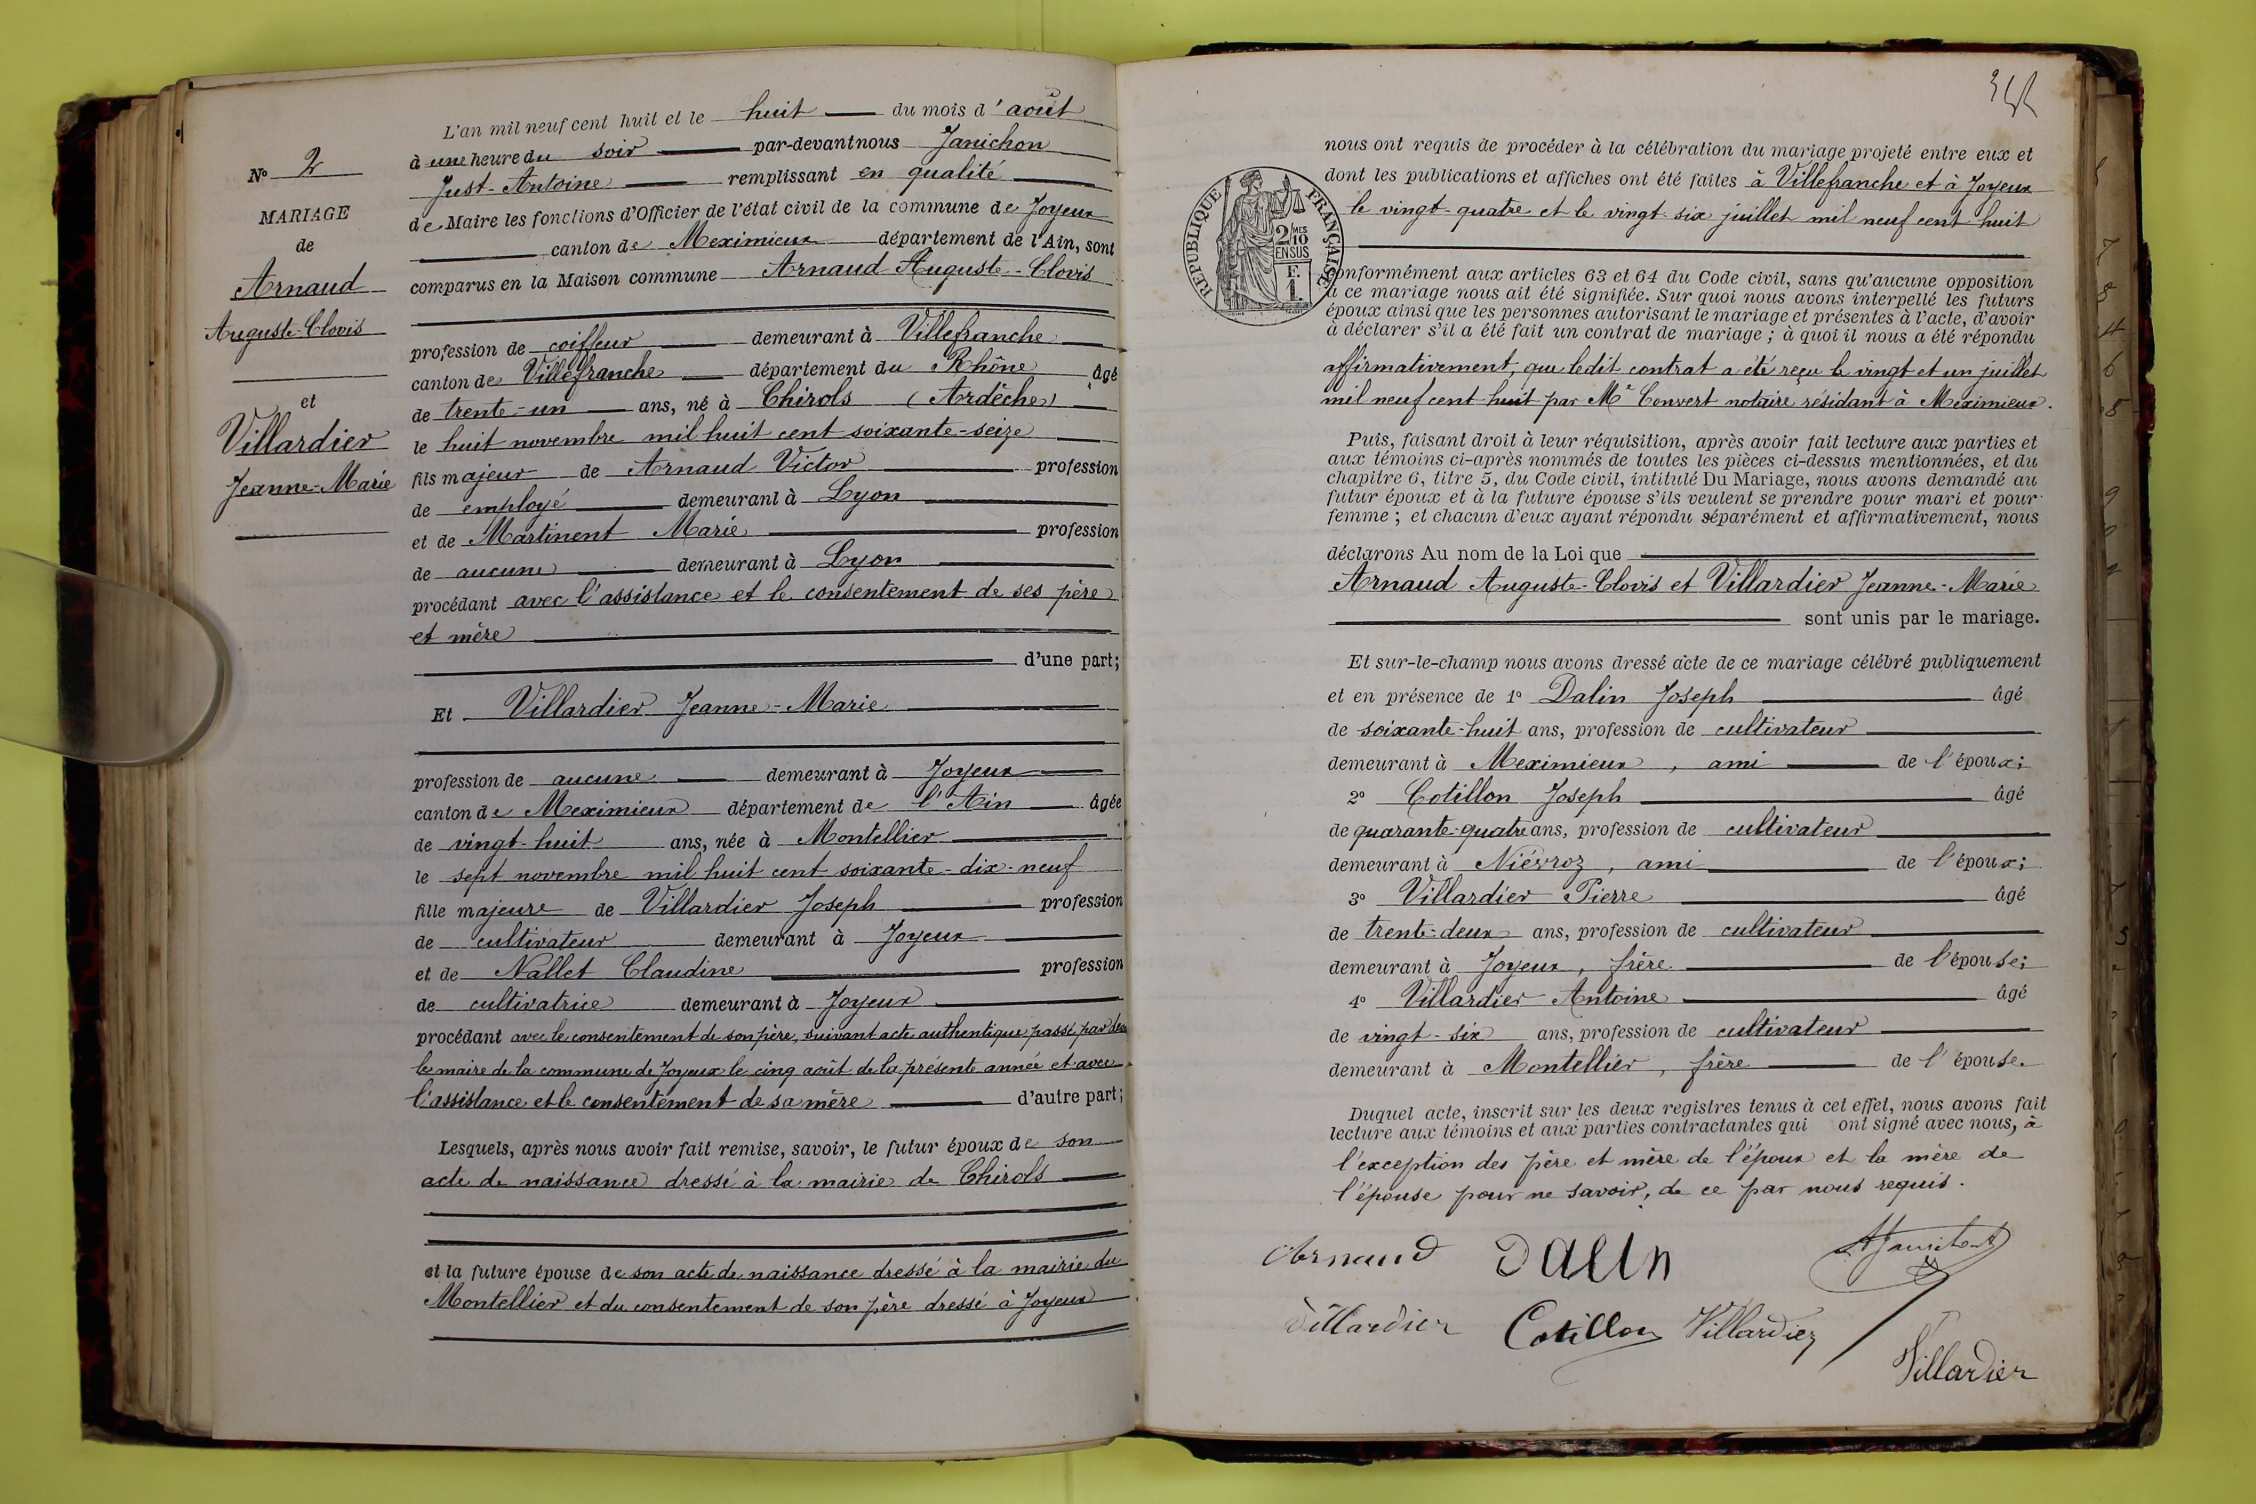 N° 2
MARIAGE
de
Arnaud
Auguste-Clovis
et
Villardier
Jeanne-Marie
L'an mil neuf cent huit et le huit du mois d'août
à une heure du soir par-devant nous Janichon
Just-Antoine remplissant en qualité
de Maire les fonctions d'Officier de l'état civil de la commune de Joyeux
canton de Meximieux département de l'Ain, sont
comparus en la Maison commune Arnaud Auguste-Clovis
profession de coiffeur demeurant à Villefranche
canton de Villefranche département du Rhône âgé
de trente-un ans, né à Chirols (Ardèche)
le huit novembre mil huit cent soixante-seize
fils majeur de Arnaud Victor profession
de employé demeurant à Lyon
et de Martinent Marie profession
de aucune demeurant à Lyon
procédant avec l'assistance et le consentement de ses père
et mère
d'une part;
Et Villardier Jeanne-Marie
profession de aucune demeurant à Joyeux
canton de Meximieux département de l'Ain âgée
de vingt-huit ans, née à Montellier
le sept novembre mil huit cent soixante-dix-neuf
fille majeure de Villardier Joseph profession
de cultivateur demeurant à Joyeux
et de Nallet Claudine profession
de cultivatrice demeurant à Joyeux
procédant avec le consentement de son père, suivant acte authentique passé par dev
le maire de la commune de Joyeux le cinq août de la présente année et avec
l'assistance et le consentement de sa mère d'autre part;
Lesquels, après nous avoir fait remise, savoir, le futur époux de son
acte de naissance dressé à la mairie de Chirols
et la future épouse de son acte de naissance dressé à la mairie du
Montellier et du consentement de son père dressé à Joyeux
REPUBLIQUE FRANÇAISE
2/10 MES
EN SUS
F.
1.
nous ont requis de procéder à la célébration du mariage projeté entre eux et
dont les publications et affiches ont été faites à Villefranche et à Joyeux
le vingt-quatre et le vingt-six juillet mil neuf cent huit
conformément aux articles 63 et 64 du Code civil, sans qu'aucune opposition
à ce mariage nous ait été signifiée. Sur quoi nous avons interpellé les futurs
époux ainsi que les personnes autorisant le mariage et présentes à l'acte, d'avoir
à déclarer s'il a été fait un contrat de mariage; à quoi il nous a été répondu
affirmativement, que ledit contrat a été reçu le vingt et un juillet
mil neuf cent huit par Me Convert notaire résidant à Meximieux.
Puis, faisant droit à leur réquisition, après avoir fait lecture aux parties et
aux témoins ci-après nommés de toutes les pièces ci-dessus mentionnées, et du
chapitre 6, titre 5, du Code civil, intitulé Du Mariage, nous avons demandé au
futur époux et à la future épouse s'ils veulent se prendre pour mari et pour
femme; et chacun d'eux ayant répondu séparément et affirmativement, nous
déclarons Au nom de la Loi que
Arnaud Auguste-Clovis et Villardier Jeanne-Marie
sont unis par le mariage.
Et sur-le-champ nous avons dressé acte de ce mariage célébré publiquement
et en présence de 1° Dalin Joseph âgé
de soixante-huit ans, profession de cultivateur
demeurant à Meximieux, ami de l'époux;
2° Cotillon Joseph âgé
de quarante-quatre ans, profession de cultivateur
demeurant à Niévroz, ami de l'époux;
3° Villardier Pierre âgé
de trente-deux ans, profession de cultivateur
demeurant à Joyeux, frère de l'épouse;
4° Villardier Antoine âgé
de vingt-six ans, profession de cultivateur
demeurant à Montellier, frère de l'épouse.
Duquel acte, inscrit sur les deux registres tenus à cet effet, nous avons fait
lecture aux témoins et aux parties contractantes qui ont signé avec nous, à
l'exception des père et mère de l'époux et la mère de
l'épouse pour ne savoir, de ce par nous requis.
Arnaud Dalin AJanichon
Villardier Cotillon Villardier
Villardier